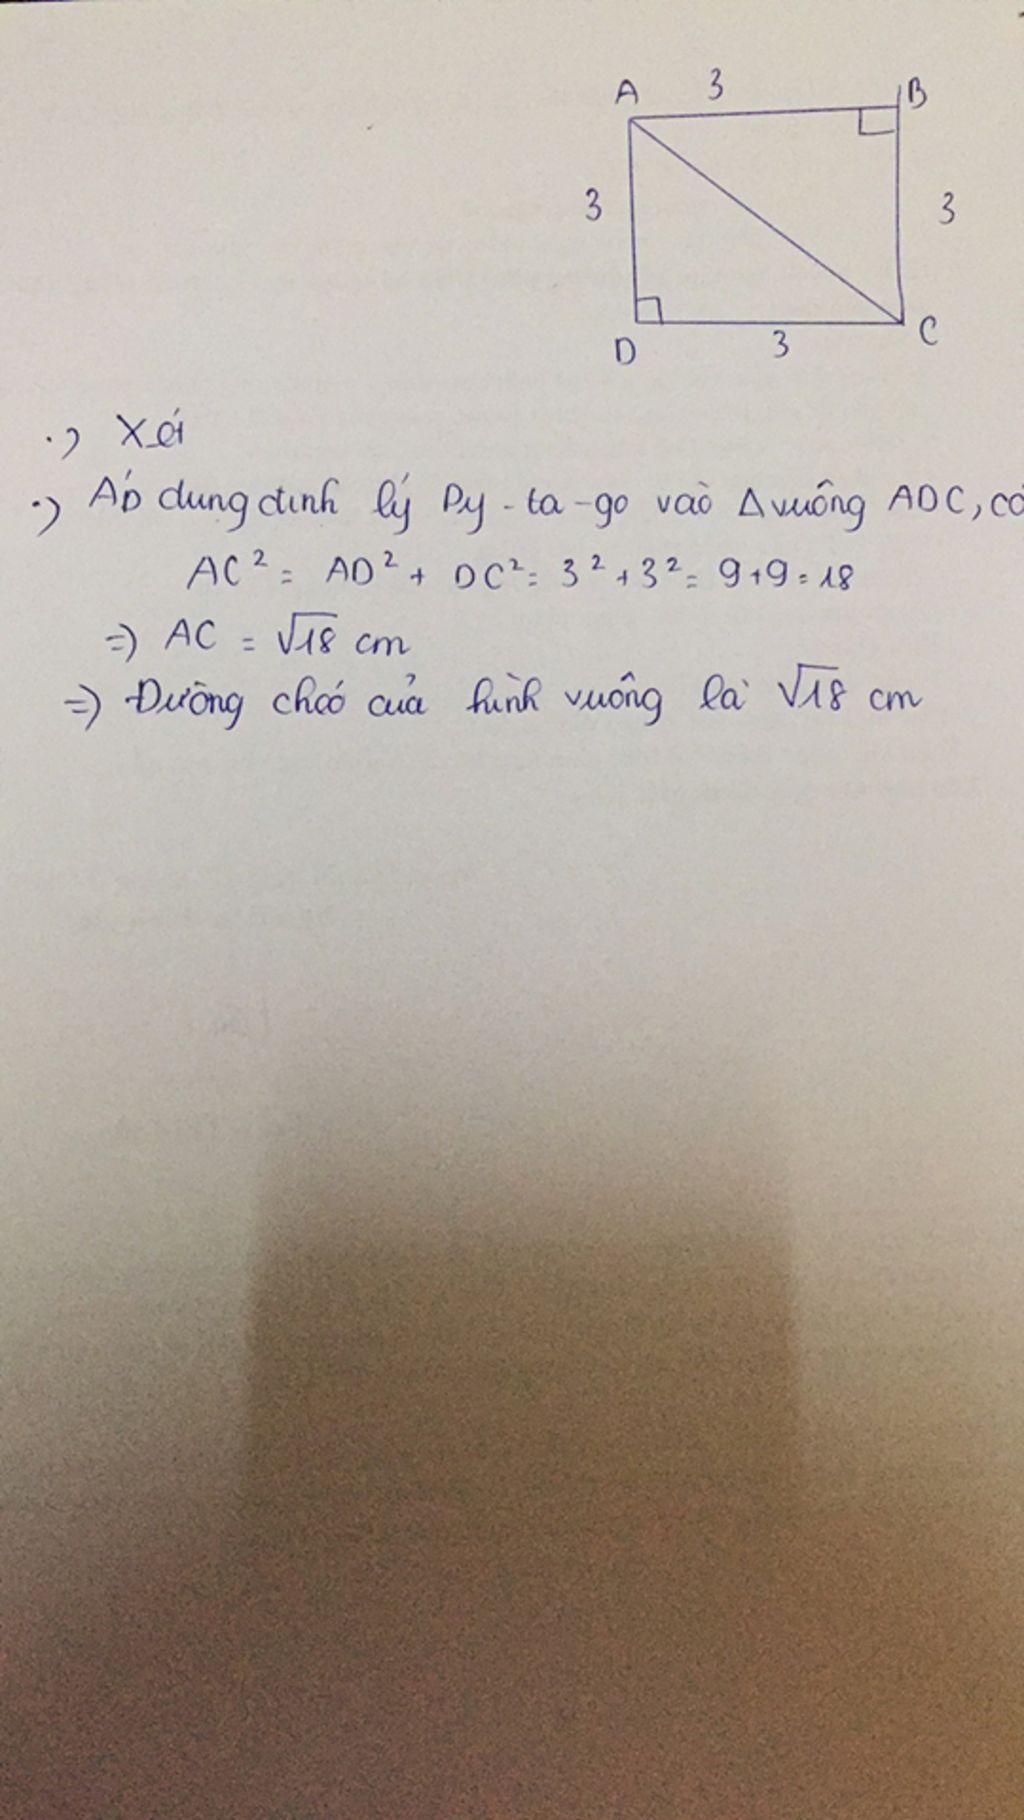 A 3 B
3 3
D 3 C
·) Xét
·) Áp dụng định lý Py-ta-go vào Δ vuông ADC, có
AC² = AD² + DC² = 3² + 3² = 9 + 9 = 18
=) AC = √18 cm
=) Đường chéo của hình vuông là √18 cm